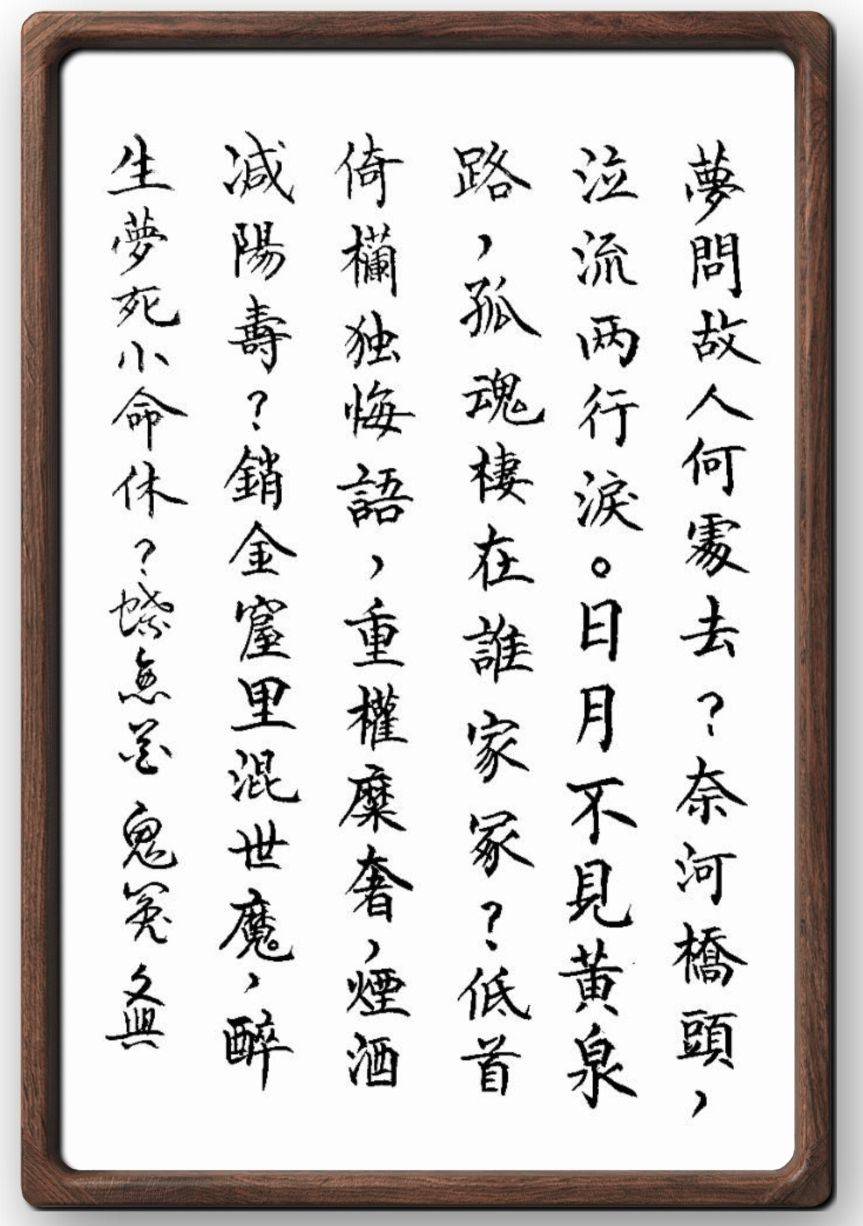 夢問故人何處去？奈河橋頭，
泣流两行淚。日月不見黄泉
路，孤魂棲在誰家冢？低首
倚欄独悔語，重權糜奢，煙酒
減陽壽？銷金窟里混世魔，醉
生夢死小命休？鬼冤